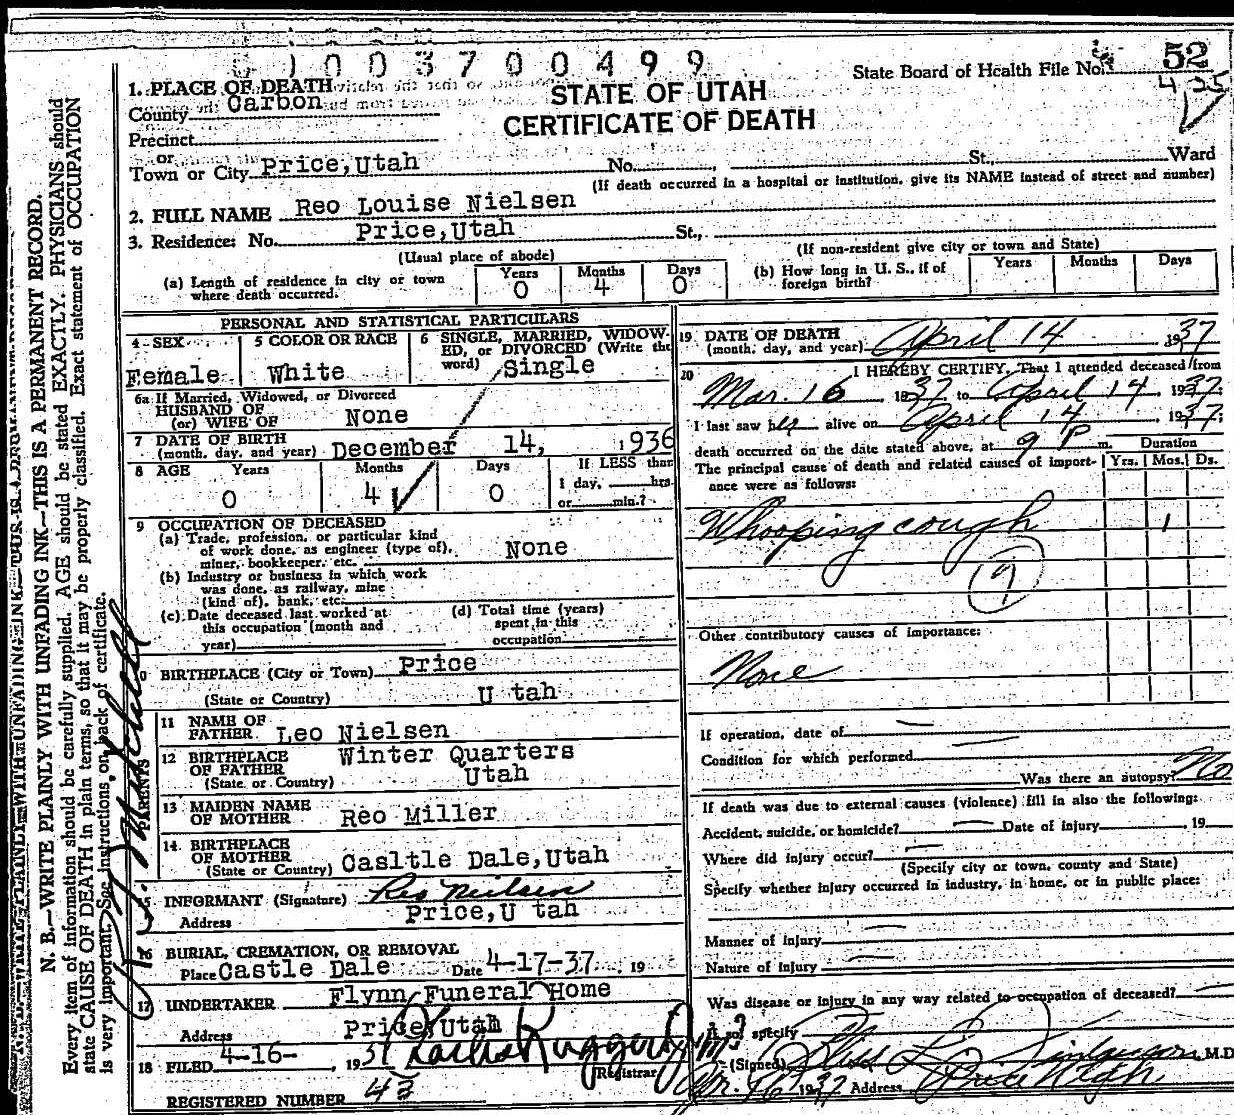 1003700499
State Board of Health File No. 52
425
STATE OF UTAH
CERTIFICATE OF DEATH
1. PLACE OF DEATH
County Carbon
Precinct
or
Town or City Price,Utah No. , St., Ward
(If death occurred in a hospital or institution, give its NAME instead of street and number)
2. FULL NAME Reo Louise Nielsen
3. Residence: No. Price,Utah St.,
(Usual place of abode) (If non-resident give city or town and State)
(a) Length of residence in city or town where death occurred. Years 0 Months 4 Days 0
(b) How long in U. S., if of foreign birth? Years Months Days
PERSONAL AND STATISTICAL PARTICULARS
4 SEX Female
5 COLOR OR RACE White
6 SINGLE, MARRIED, WIDOWED, or DIVORCED (Write the word) Single
6a If Married, Widowed, or Divorced
HUSBAND OF
(or) WIFE OF None
7 DATE OF BIRTH
(month, day, and year) December 14, 1936
8 AGE Years 0 Months 4 Days 0 If LESS than 1 day, hrs. or min.?
9 OCCUPATION OF DECEASED
(a) Trade, profession, or particular kind of work done, as engineer (type of), miner, bookkeeper, etc. None
(b) Industry or business in which work was done, as railway, mine (kind of), bank, etc.
(c) Date deceased last worked at this occupation (month and year)
(d) Total time (years) spent in this occupation
10 BIRTHPLACE (City or Town) Price
(State or Country) U tah
PARENTS
11 NAME OF FATHER Leo Nielsen
12 BIRTHPLACE OF FATHER Winter Quarters
(State or Country) Utah
13 MAIDEN NAME OF MOTHER Reo Miller
14. BIRTHPLACE OF MOTHER
(State or Country) Casltle Dale,Utah
15 INFORMANT (Signature) Reo Nielsen
Address Price,U tah
16 BURIAL, CREMATION, OR REMOVAL
Place Castle Dale Date 4-17-37 , 19
17 UNDERTAKER Flynn Funeral Home
Address Price,Utah
18 FILED 4-16- , 1937
Registrar
REGISTERED NUMBER 43
19 DATE OF DEATH
(month, day, and year) April 14 , 1937
20 I HEREBY CERTIFY, That I attended deceased from
Mar. 16 , 1937 to April 14 , 1937;
I last saw her alive on April 14 , 1937;
death occurred on the date stated above, at 9 P m.
The principal cause of death and related causes of importance were as follows:
Duration
Yrs. Mos. Ds.
Whooping cough 1
9
Other contributory causes of importance:
None
If operation, date of —
Condition for which performed —
Was there an autopsy? No
If death was due to external causes (violence) fill in also the following:
Accident, suicide, or homicide? — Date of injury , 19
Where did injury occur? —
(Specify city or town, county and State)
Specify whether injury occurred in industry, in home, or in public place:
Manner of injury —
Nature of injury —
Was disease or injury in any way related to occupation of deceased? —
If so, specify
(Signed) M.D.
Apr. 16 1937 Address Price Utah
N. B.—WRITE PLAINLY WITH UNFADING INK—THIS IS A PERMANENT RECORD.
Every item of information should be carefully supplied. AGE should be stated EXACTLY. PHYSICIANS should
state CAUSE OF DEATH in plain terms, so that it may be properly classified. Exact statement of OCCUPATION
is very important. See instructions on back of certificate.